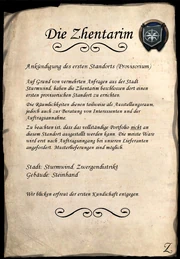 Die Zhentarim
Ankündigung des ersten Standorts (Provisorium)
Auf Grund von vermehrten Anfragen aus der Stadt
Sturmwind, haben die Zhentarim beschlossen dort einen
ersten provisorischen Standort zu errichten.
Die Räumlichkeiten dienen teilweise als Ausstellungsraum,
jedoch auch zur Beratung von Interessenten und der
Auftragsannahme.
Zu beachten ist, dass das vollständige Portfolio nicht an
diesem Standort ausgestellt werden kann. Die meiste Ware
wird erst nach Auftragseingang bei unseren Lieferanten
angefordert. Musterlieferungen sind möglich.
Stadt: Sturmwind, Zwergendistrikt
Gebäude: Steinhand
Wir blicken erfreut der ersten Kundschaft entgegen
Z